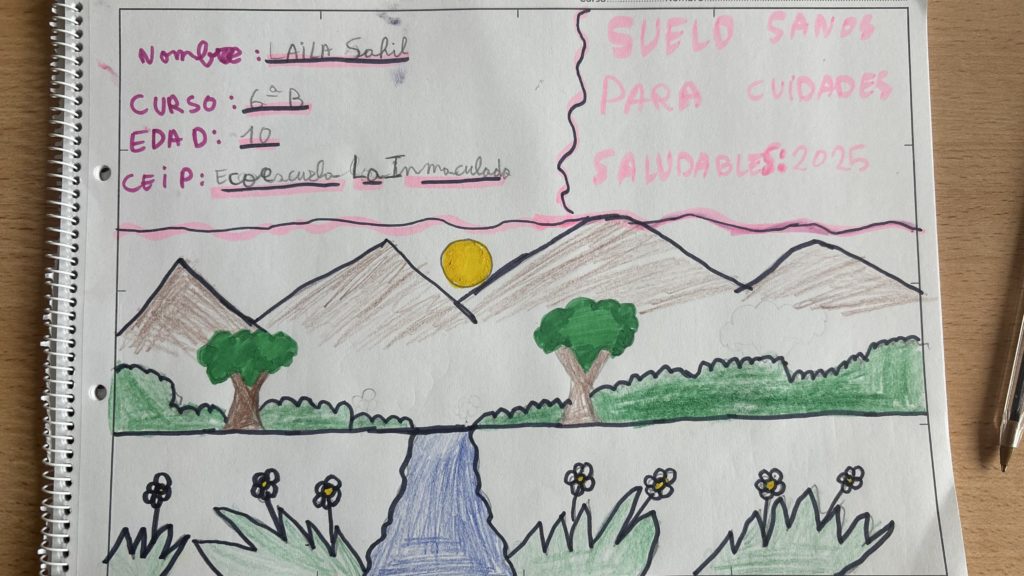 Nombre: LAILA Sahil
CURSO: 6ª B
EDAD: 10
CEiP: Ecoescuela La Inmaculada
SUELO SANOS
PARA CUIDADES
SALUDABLES: 2025